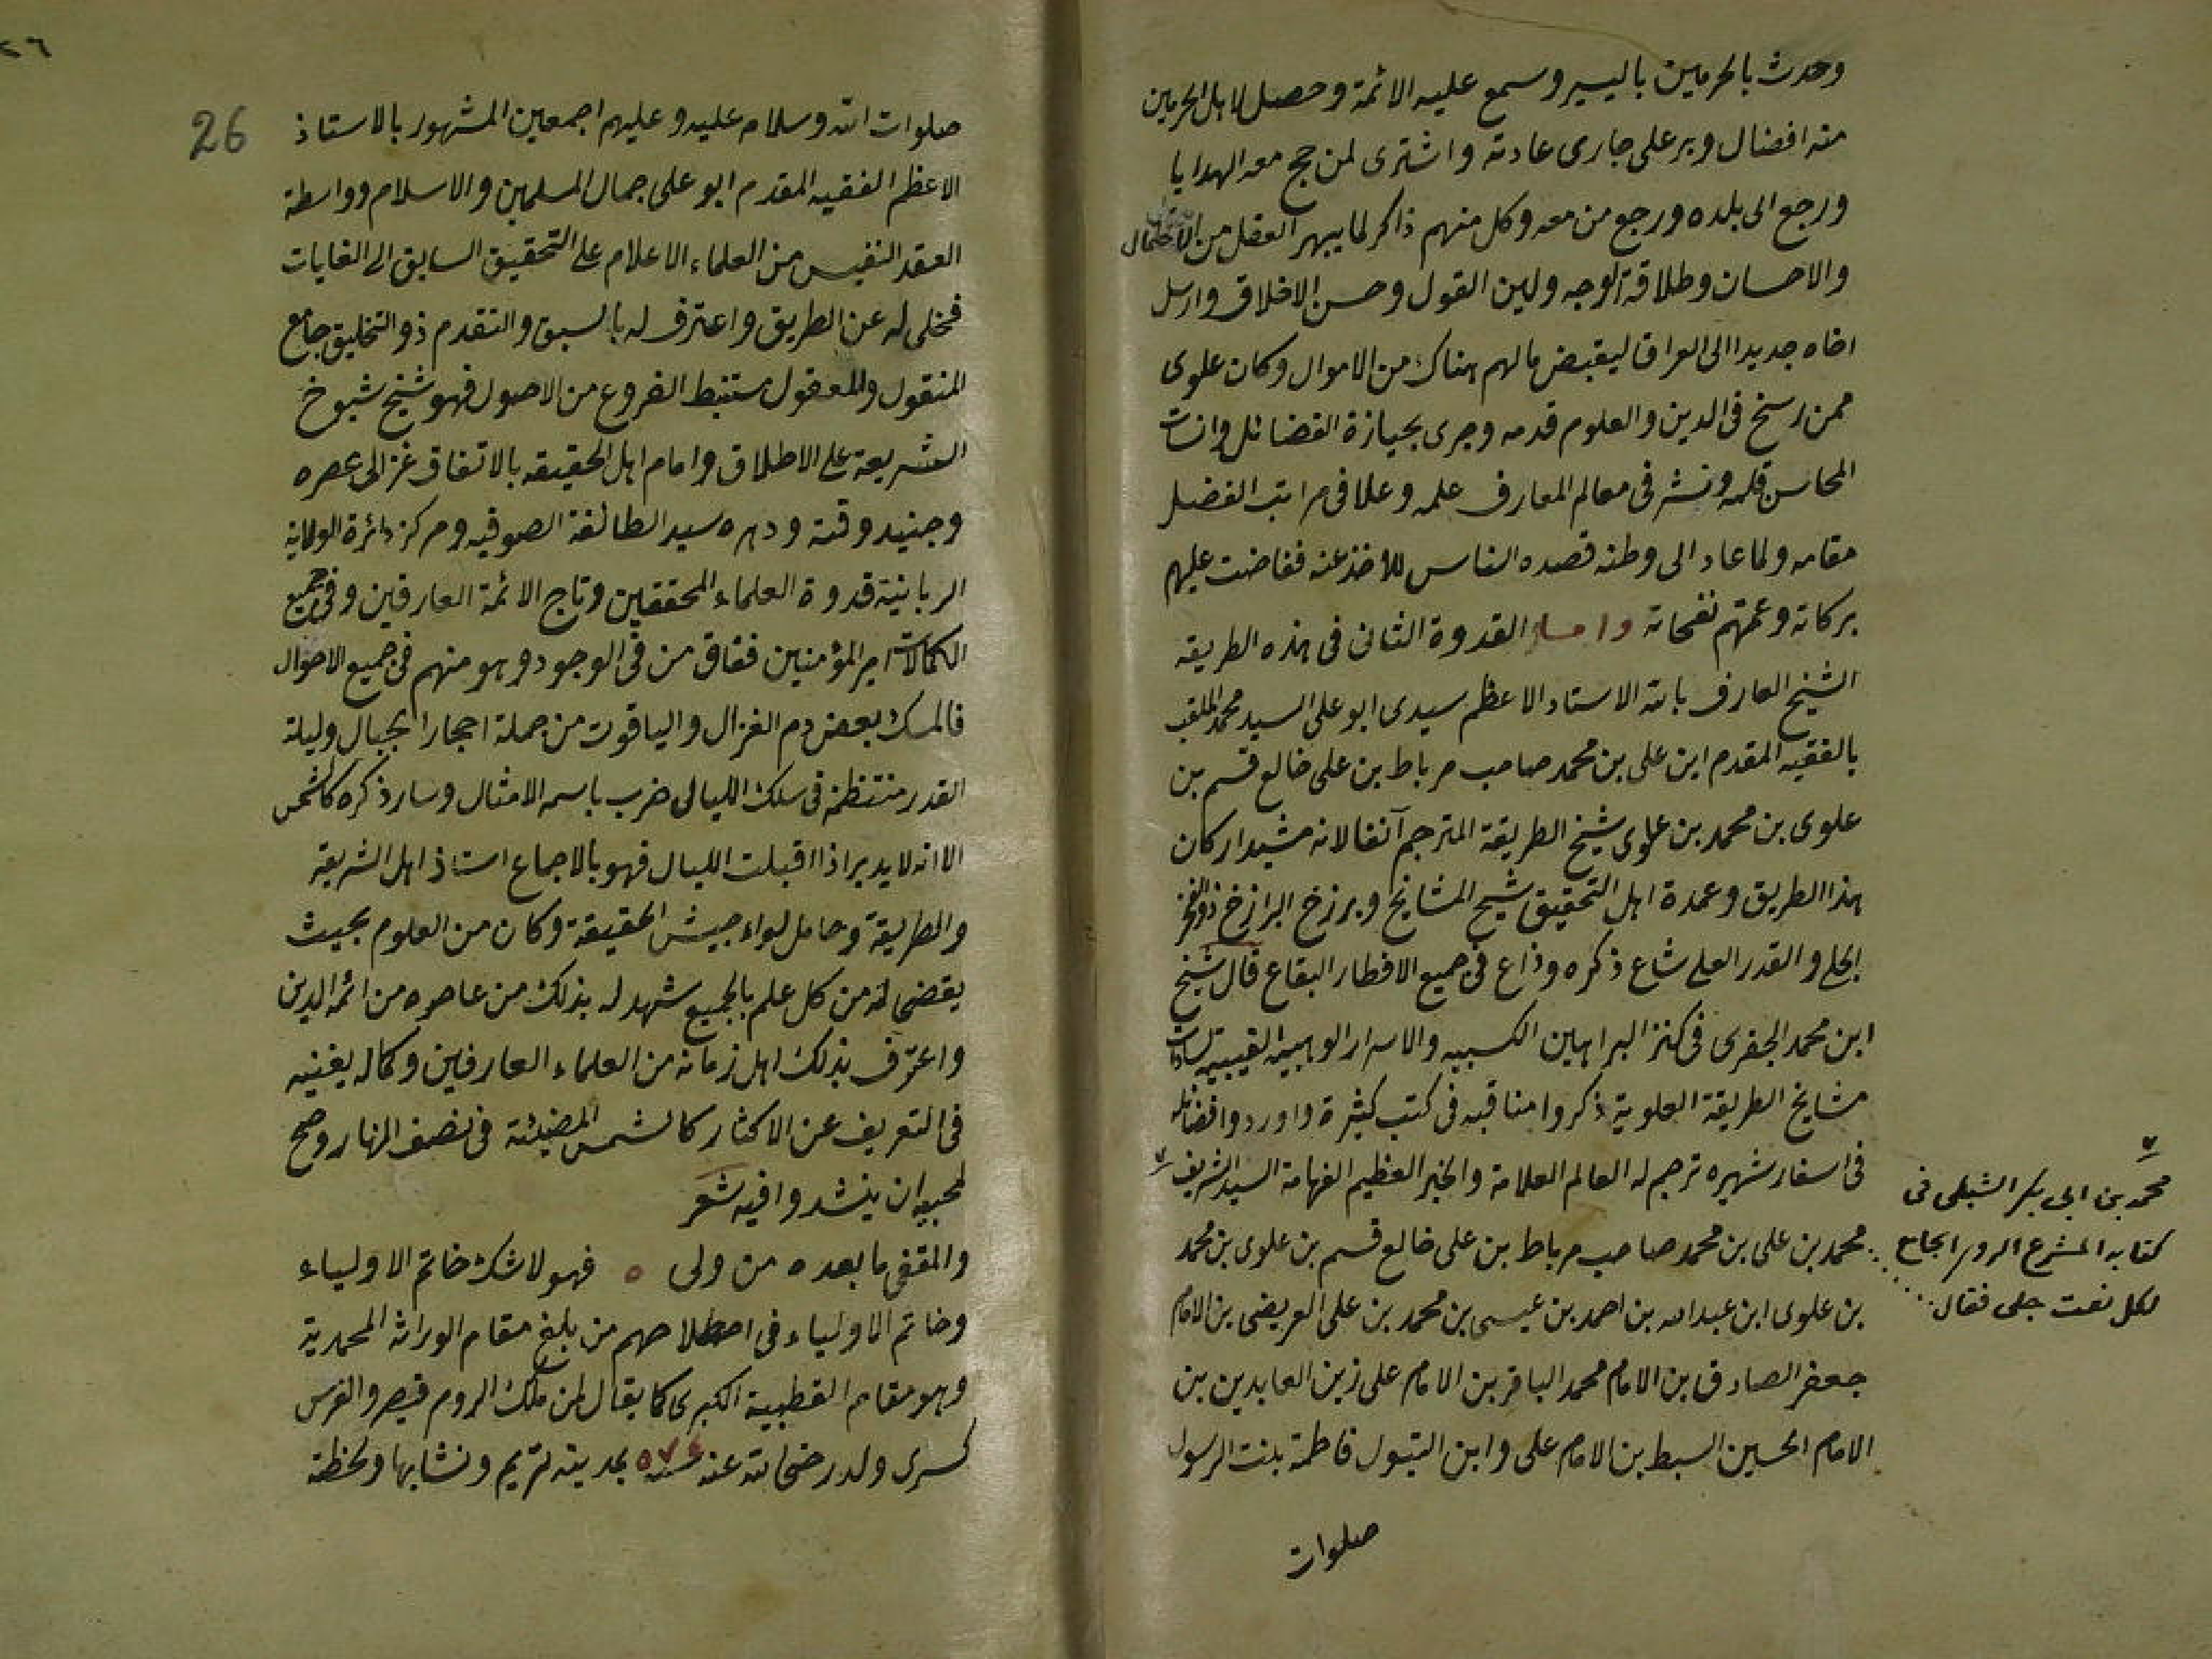 وحدث بالحرمين باليسير وسمع عليه الائمة وحصل لاهل الحرمين
منه افضال وبر على جارى عادته واشترى لمن حج معه الهدايا
ورجع الى بلده ورجع من معه وكل منهم ذاكر لما يبهر العقل من
والاحسان وطلاقة الوجه ولين القول وحسن الاخلاق وارسل
اخاه جديدا الى العراق ليقبض مالهم هناك من الاموال وكان علوى
ممن رسخ فى الدين والعلوم قدمه وجرى بحيازة الفضائل واثبات
المحاسن قلمه ونشر فى معالم المعارف علمه وعلا فى مراتب الفضل
مقامه ولما عاد الى وطنه قصده الناس للاخذ عنه ففاضت عليهم
بركاته وعمتهم نفحاته واما القدوة الثانى فى هذه الطريقه
الشيخ العارف بالله الاستاد الاعظم سيدى ابو على السيد محمد الملقب
بالفقيه المقدم ابن على بن محمد صاحب مرباط بن على خالع قسم بن
علوى بن محمد بن علوى شيخ الطريقة المترجم آنفا لانه مشيد اركان
هذا الطريق وعمدة اهل التحقيق شيخ المشايخ وبرزخ البرازخ ذو الفخر
الجلى والقدر العلى شاع ذكره وذاع فى جميع الاقطار البقاع قال شيخ
ابن محمد الجفرى فى كنز البراهين الكسبيه والاسرار الوهبيه الغيبيه لسادات
مشايخ الطريقة العلوية ذكروا مناقبه فى كتب كثيرة واوردوا فضائله
فى اسفار شهيره ترجم له العالم العلامة والحبر العظيم الفهامة السيد الشريف ٧
٧
محمد بن ابى بكر الشبلى فى
كتابه المشرع الروى الجامع
لكل نعت جلى فقال
محمد بن على بن محمد صاحب مرباط بن على خالع قسم بن علوى بن محمد
بن علوى ابن عبد الله بن احمد بن عيسى بن محمد بن على العريضى بن الامام
جعفر الصادق بن الامام محمد الباقر بن الامام على زين العابدين بن
الامام الحسين السبط بن الامام على وابن البتول فاطمة بنت الرسول
صلوات
٢٦
26
صلوات الله وسلام عليه وعليهم اجمعين المشهور بالاستاذ
الاعظم الفقيه المقدم ابو على جمال المسلمين والاسلام وواسطة
العقد النفيس من العلماء الاعلام على التحقيق السابق الى الغايات
فخلى له عن الطريق واعترف له بالسبق والتقدم ذو التخليق جامع
المنقول والمعقول مستنبط الفروع من الاصول فهو شيخ شيوخ
الشريعة على الاطلاق وامام اهل الحقيقه بالاتفاق غزالى عصره
وجنيد وقته ودهره سيد الطائفة الصوفيه ومركز دائرة الولاية
الربانية قدوة العلماء المحققين وتاج الائمة العارفين وفى جميع
الكمالات امير المؤمنين ففاق من فى الوجود وهو منهم فى جميع الاحوال
فالمسك بعض دم الغزال والياقوت من جملة احجار الجبال وليلة
القدر منتظمة فى سلك الليالى ضرب باسمه الامثال وسار ذكره كالشمس
الا انه لا يدبر اذا اقبلت الليال فهو بالاجماع استاذ اهل الشريعة
والطريقة وحامل لواء جيش الحقيقة وكان من العلوم بحيث
يقضى له من كل علم بالجميع شهد له بذلك من عاصره من ائمة الدين
واعترف بذلك اهل زمانه من العلماء العارفين وكماله يغنيه
فى التعريف عن الاكثار كالشمس المضيئة فى نصف النهار وصح
لمحبيه ان ينشدوا فيه شعر
والمقفى ما بعده من ولى ٥ فهو لا شك خاتم الاولياء
وخاتم الاولياء فى اصطلاحهم من بلغ مقام الوراثة المحمدية
وهو مقام القطبية الكبرى كما يقال لمن ملك الروم قيصر والفرس
كسرى ولد رضى الله عنه سنة ٥٧٤ بمدينة تريم ونشأ بها ولحظته